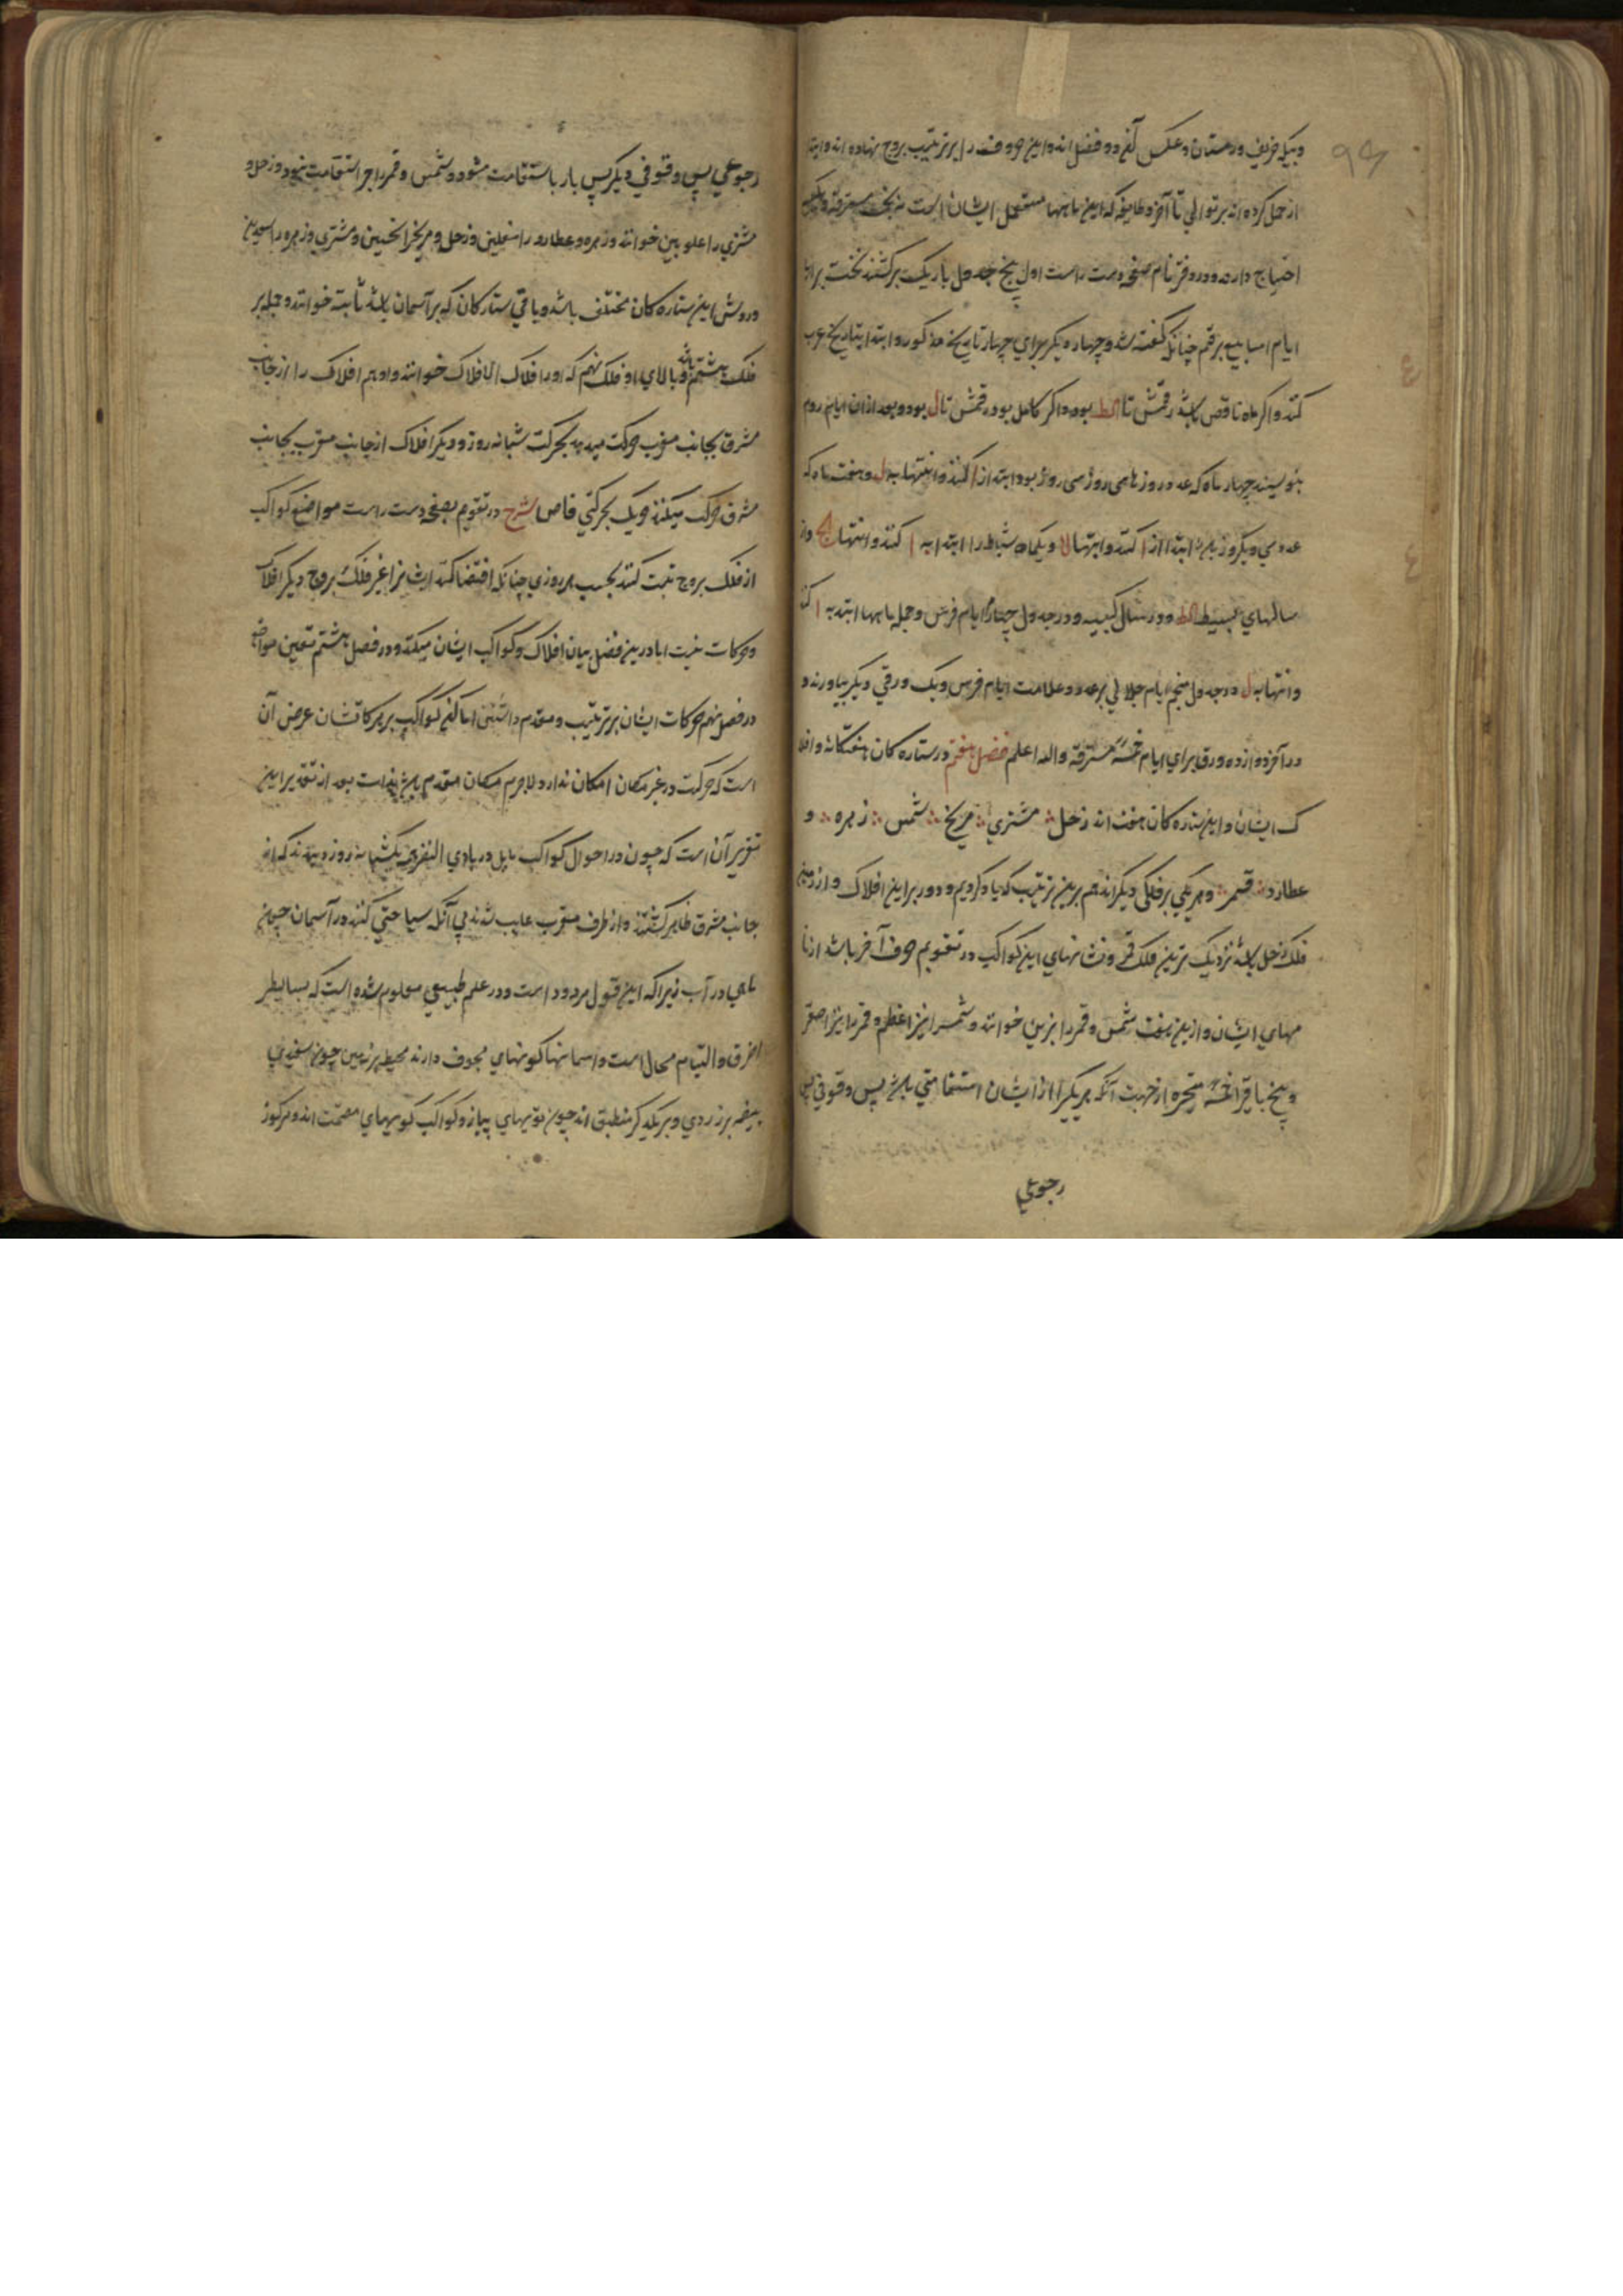 ۹۴
و بیکه خریف و زمستان و عکس آنهم دو فصل اند و این حروف را بر ترتیب بروج نهاده اند و ابتدا
از حمل کرده اند بر توالی تا آخر و طایفه که این ماهها مستعمل ایشان است مسترقه
احتیاج دارند و در دفتر نام صفحه دست راست اول پنج جدول باریک برکشند نخست برای
ایام اسابیع برقم چنانک گفته شد و چهار دیگر برای چهار تاریخ مذکور و ابتدا بتاریخ عرب
کنند و اگر ماه ناقص باشد رقمش تا کط بود و اگر کامل بود رقمش تا ل بود و بعد از آن ایام روم
بنویسند چهار ماه که عدد روزهای سی روز بود ابتدا از ا کنند و انتها به ل و هفت ماه که
عدد سی و یکروز باشد ابتدا از ا کنند و انتها لا و یکماه شباط را ابتدا به ا کنند و انتها کح در
سالهای بسیط کط و در سال کبیسه و در جدول چهارم ایام فرس و جمله ماهها ابتدا به ا کنند
و انتها به ل و در جدول پنجم ایام جلالی بر عدد و علامت ایام فرس و یک ورقی دیگر بیاورند و
در آخر دوازده ورق برای ایام خمسه مسترقه والله اعلم فصل هفتم در ستاره کان هفتگانه و افلا
ک ایشان و این ستاره کان هفت اند زحل مشتری مریخ شمس زهره و
عطارد قمر و هر یکی بر فلکی دیگر اند هم برین ترتیب که یاد کردیم و دور برین افلاک از زمین
فلک زحل باشد نزدیک ترین فلک قمر و نشانهای این کواکب در تقویم حرف آخر باشد از نا
مهای ایشان و ازین هفت شمس و قمر را نیرین خوانند و شمس را نیر اعظم و قمر را نیر اصغر
و پنج باقی را خمسه متحیره از جهت آنکه هر یکی را از ایشان استقامتی باشد پس وقوفی پس
رجوعی
رجوعی پس وقوفی دیگر پس بار باستقامت شود و شمس و قمر را جز استقامت نبود و زحل و
مشتری را علویین خوانند و زهره و عطارد را سفلین و زحل و مریخ را نحسین و مشتری و زهره را سعدین
و روش این ستاره کان مختلف باشد و باقی ستارکان که بر آسمان باشد ثابته خوانند و جمله بر
فلک هشتم باشد و بالای او فلک نهم که او را فلاک الافلاک خوانند و او هم افلاک را از جانب
مشرق بجانب مغرب حرکت میدهد بحرکت شبانه روز و دیگر افلاک از جانب مغرب بجانب
مشرق حرکت میکنند هریک بحرکتی خاص شرح در تقویم بصفحه دست راست مواضع کواکب
از فلک بروج ثبت کنند بحسب هر روزی چنانکه اقتضا کند ایشانرا غیر فلک بروج دیگر افلاک
و حرکات نیست اما درین فصل بیان افلاک و کواکب ایشان میکند و در فصل هشتم تعیین مواضع
در فصل نهم حرکات ایشان بر ترتیب و مقدم داشتن اماکن کواکب بر حرکاتشان غرض آن
است که حرکت در غیر مکان امکان ندارد لاجرم مکان مقدم باید بعد از تقدیر این
تقریر آن است که چون در احوال کواکب تامل در بادی النظر یکشبانه روز دیدند که از
جانب مشرق ظاهر گشتند و از طرف مغرب غایب شدند پی آنکه سیاحتی کنند در آسمان چون
ماهی در آب زیراکه این قول مردود است و در علم طبیعی معلوم شده است که بسایط را
خرق و التیام محال است و اسمانها گویهای مجوف دارند محیط بر زمین چون سفیدی
بیضه بر زردی و بر یکدیگر منطبق اند چون تویهای پیاز و کواکب گویهای مصمت اند و مرکوز